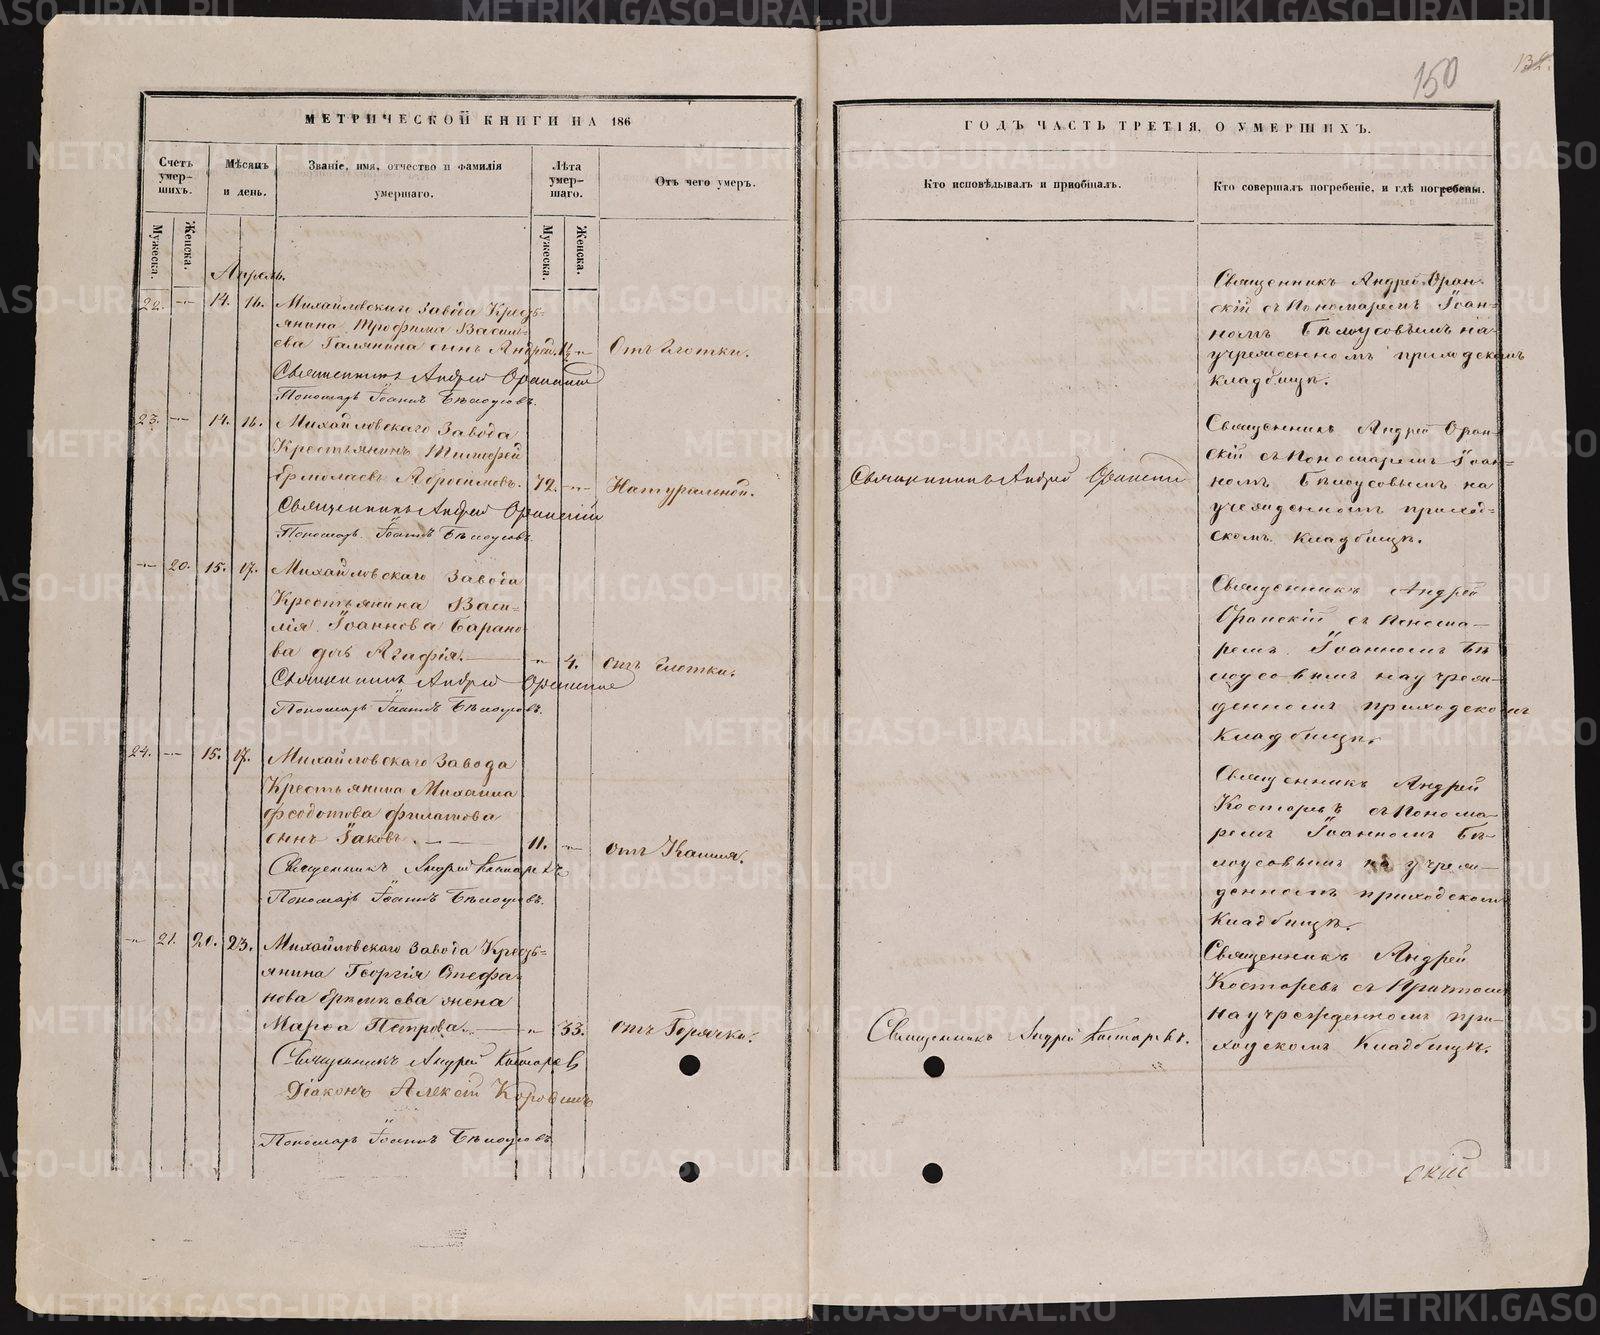 150
132.
МЕТРИЧЕСКОЙ КНИГИ НА 186
ГОДЪ ЧАСТЬ ТРЕТІЯ, О УМЕРШИХЪ.
Счетъ умер-шихъ.
Мѣсяцъ и день.
Званіе, имя, отчество и фамилія умершаго.
Лѣта умер-шаго.
Отъ чего умеръ.
Кто исповѣдывалъ и пріобщалъ.
Кто совершалъ погребеніе, и гдѣ погребены.
Мужеска.
Женска.
Мужеска.
Женска.
Апрель.
22. 14. 16. Михайловскаго Завода Кресть-
янина Трофима Василь-
ева Галянина сынъ Андрей. Отъ Глотки.
Священникъ Андрей Оранскій
Пономарь Іоаннъ Бѣлоусовъ.
Священникъ Андрей Оран-
скій съ Пономаремъ Іоан-
номъ Бѣлоусовымъ на
учрежденномъ приходскомъ
кладбищѣ.
23. 14. 16. Михайловскаго Завода
Крестьянинъ Тимофей
Ермолаевъ Абросимовъ. 72. Натуральной.
Священникъ Андрей Оранскій
Пономарь Іоаннъ Бѣлоусовъ.
Священникъ Андрей Оранскій
Священникъ Андрей Оран-
скій съ Пономаремъ Іоан-
номъ Бѣлоусовымъ на
учрежденномъ приход-
скомъ кладбищѣ.
20. 15. 17. Михайловскаго Завода
Крестьянина Васи-
лія Іоаннова Барано-
ва дочь Агафія. 4. отъ глотки.
Священникъ Андрей Оранскій
Пономарь Іоаннъ Бѣлоусовъ.
Священникъ Андрей
Оранскій съ Понома-
ремъ Іоанномъ Бѣ-
лоусовымъ на учреж-
денномъ приходскомъ
Кладбищѣ.
24. 15. 17. Михайловскаго Завода
Крестьянина Михаила
Феодотова Филатова
сынъ Іаковъ. 11. отъ Кашля.
Священникъ Андрей Костаревъ
Пономарь Іоаннъ Бѣлоусовъ.
Священникъ Андрей
Костаревъ съ Понома-
ремъ Іоанномъ Бѣ-
лоусовымъ на учреж-
денномъ приходскомъ
Кладбищѣ.
21. 20. 23. Михайловскаго Завода Кресть-
янина Георгія Стефа-
нова жена
Марфа Петрова. 33. отъ Горячки.
Священникъ Андрей Костаревъ
Діаконъ Алексѣй
Пономарь Іоаннъ Бѣлоусовъ
Священникъ Андрей Костаревъ.
Священникъ Андрей
Костаревъ съ Причтомъ
на учрежденномъ при-
ходскомъ Кладбищѣ.
скій
METRIKI.GASO-URAL.RU